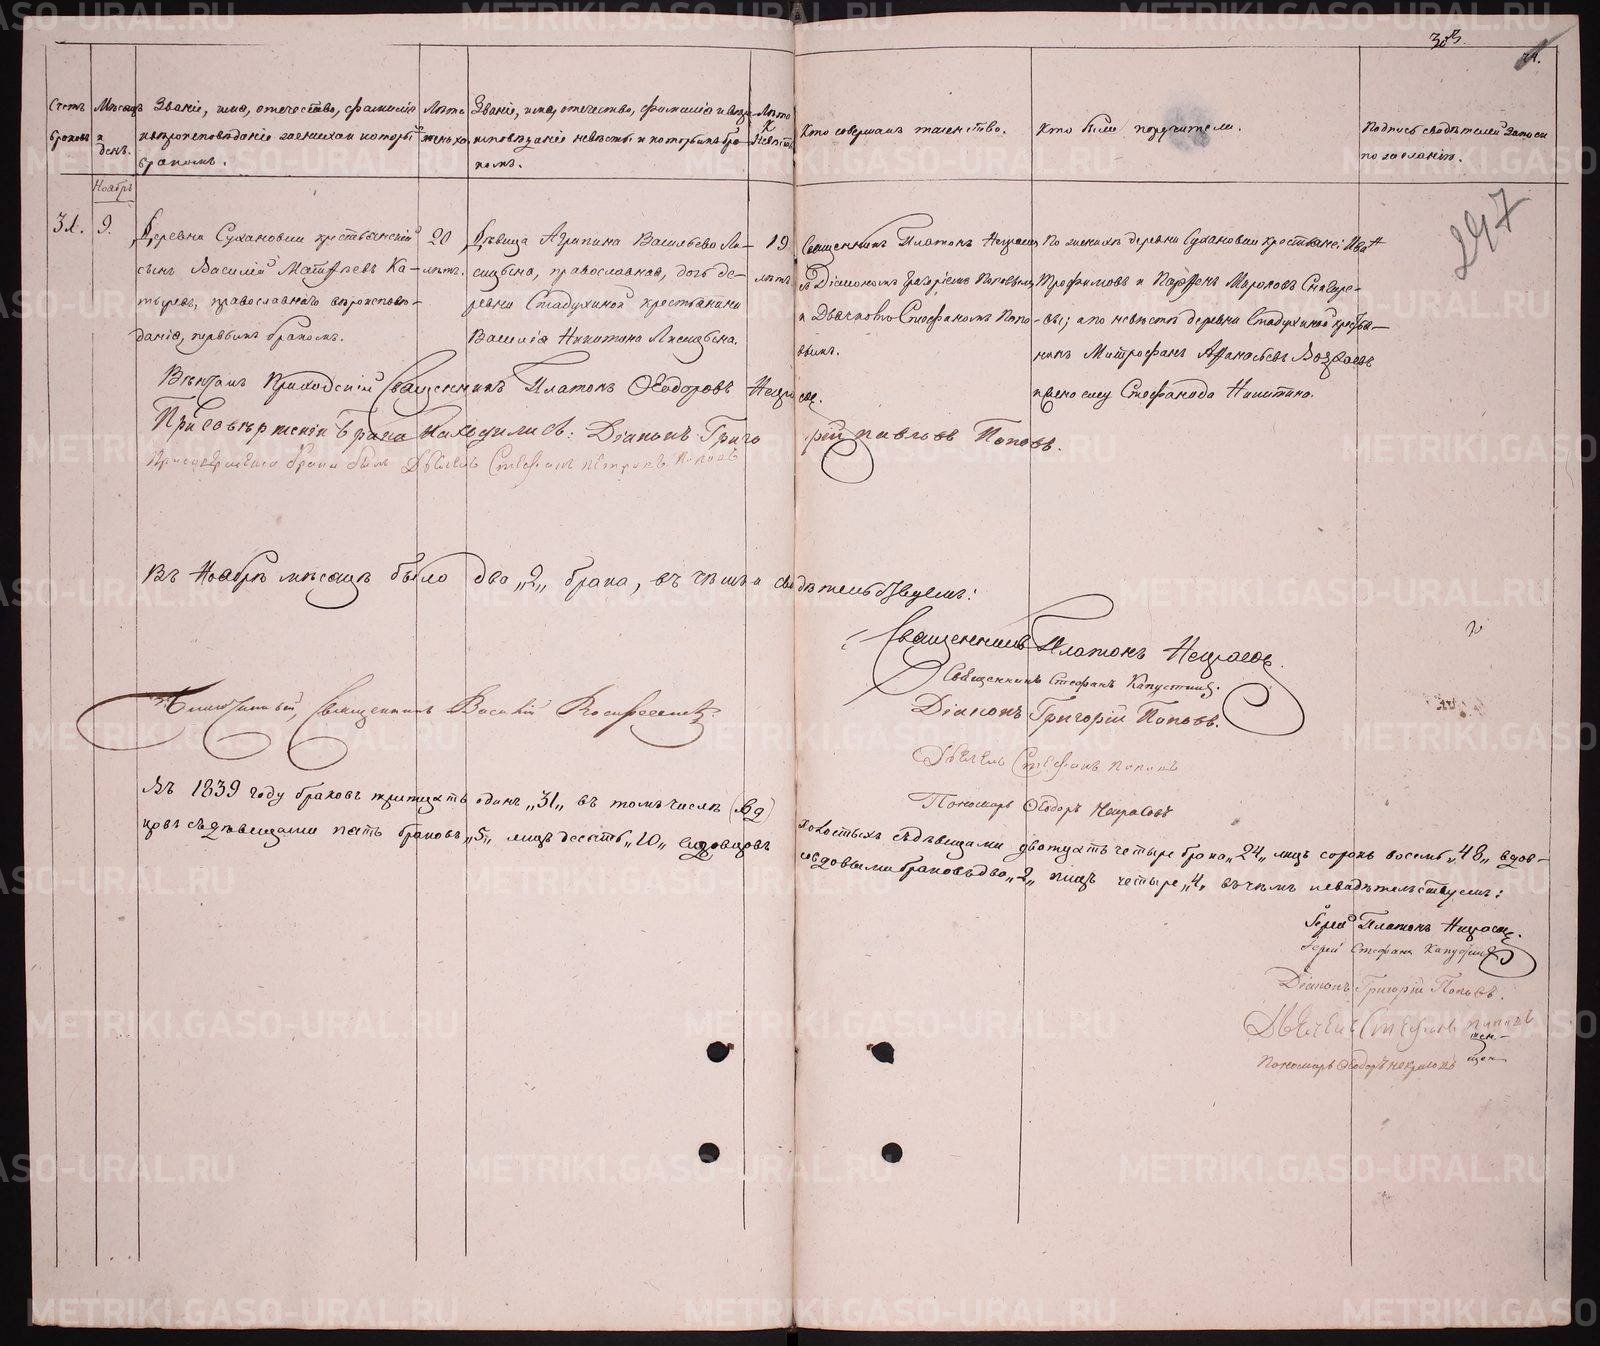 303.
Счетъ браковъ
Мѣсяцъ и день.
Званіе, имя, отечество, фамилія
и вѣроисповѣданіе жениха и которымъ
бракомъ.
Лѣта жениха
Званіе, имя, отечество, фамилія и вѣро
исповѣданіе невѣсты и которымъ бра
комъ.
Лѣта невѣсты
Кто совершалъ таинство.
Кто были поручители.
Подпись свидѣтелей записи
по желанію.
Ноябрь
247
31.
9.
Деревни Сухановки крестьянскій
сынъ Василій Матѳеевъ Ка-
тыревъ, православнаго вѣроиспове-
данія, первымъ бракомъ.
20
лѣтъ.
Дѣвица Агрипина Васильева Ли-
сицына, православная, дочь де-
ревни Стадухиной крестьянина
Василія Никитина Лисицына.
19
лѣтъ
Священникъ Платонъ Некрасовъ
съ Діакономъ Григоріемъ Поповымъ
и Дьячкомъ Стефаномъ Попо-
вымъ.
По женихѣ деревни Сухановки крестьяне: Иванъ
Трофимовъ и Парфенъ Марковъ
по невѣстѣ деревни Стадухиной крестья-
нинъ Митрофанъ Афанасьевъ
села Никитина.
Вѣнчалъ Приходскій Священникъ Платонъ Ѳеодоровъ Некрасовъ.
При совѣршеніи Брака находились: Діаконъ Григорій Павловъ Поповъ.
При совершеніи брака былъ Дьячекъ Стефанъ Петровъ Поповъ
Въ Ноябрѣ мѣсяцѣ было два „2„ брака, въ чемъ и свидѣтельствуемъ:
Священникъ Платонъ Некрасовъ.
Священникъ Стефанъ Капустинъ.
Діаконъ Григорій Поповъ.
Дьячекъ Стефанъ Поповъ
Пономарь Ѳеодоръ Некрасовъ
Благочинный, Священникъ Василій
Въ 1839 году браковъ тритцать одинъ „31„ въ томъ числѣ
съ дѣвицами пять браковъ „5„ лицъ десять „10„ вдовцовъ
холостыхъ съ дѣвицами дватцать четыре брака „24„ лицъ сорокъ восемь „48„ вдов-
со вдовыми браковъ два „2„ лицъ четыре „4„ въ чемъ и свидѣтельствуемъ:
Іерей Платонъ Некрасовъ.
Іерей Стефанъ Капустинъ
Діаконъ Григорій Поповъ.
Дьячекъ Стефанъ Поповъ
Пономарь Ѳеодоръ Некрасовъ
METRIKI.GASO-URAL.RU